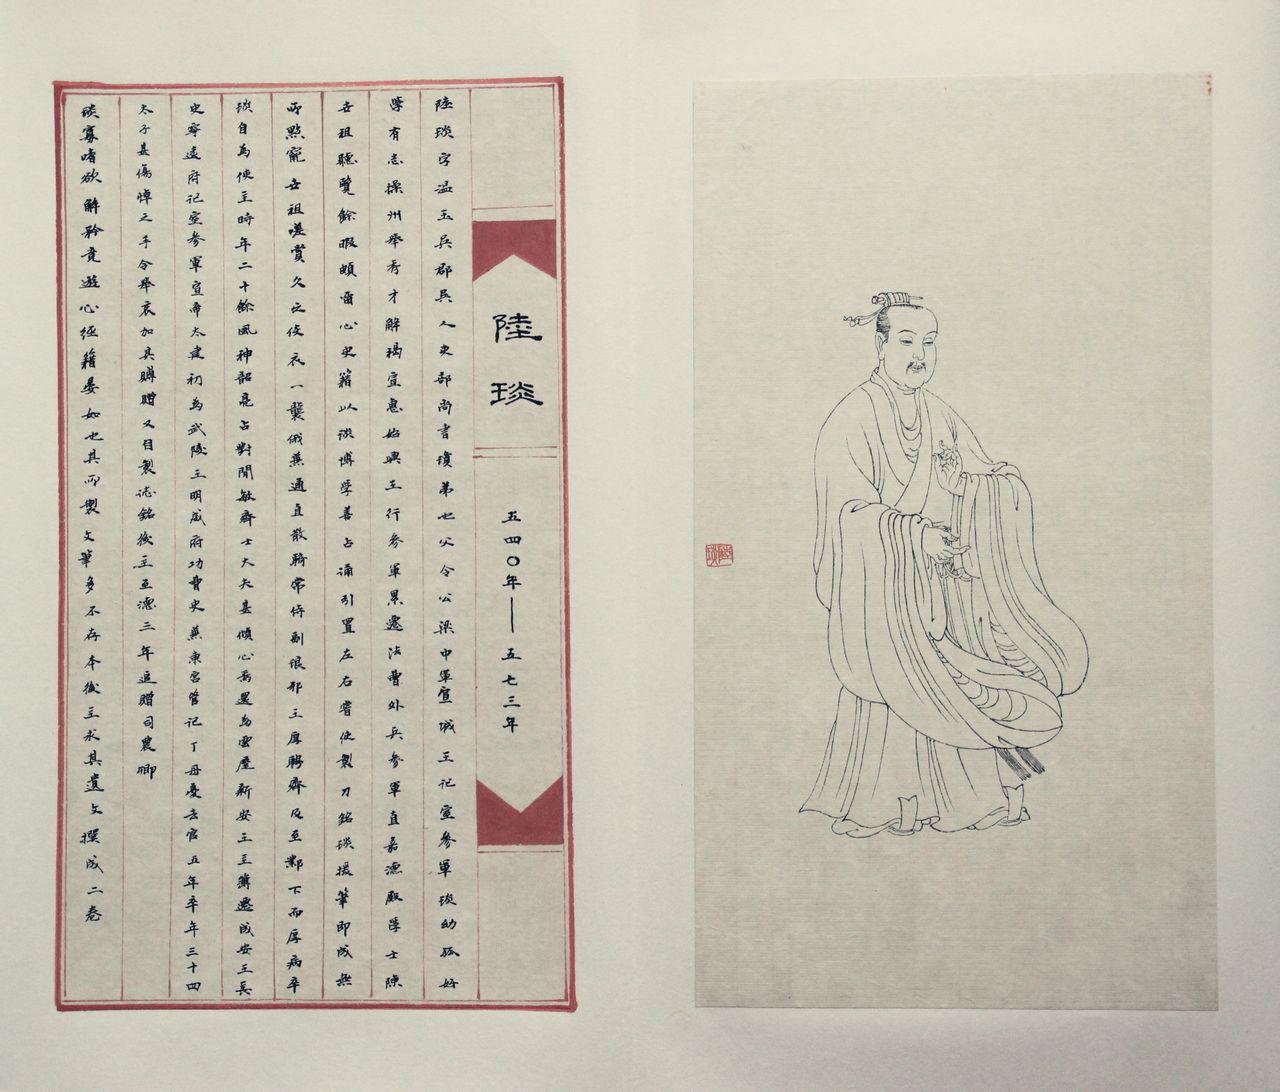 陸琰
五四〇年——五七三年
陸琰字温玉吳郡吳人吏部尚書瓊弟也父令公梁中軍宣城王記室參軍琰幼孤好
學有志操州舉秀才解褐宣惠始興王行參軍累遷法曹外兵參軍直嘉德殿學士陳
世祖聽覽餘暇頗留心史籍以琰博學善占誦引置左右嘗使製刀銘琰援筆即成無
所點竄世祖嗟賞久之使衣一襲俄兼通直散騎常侍副琅邪王厚聘齊及至鄴下而厚病卒
琰自為使主時年二十餘風神韶亮占對閑敏齊士大夫甚傾心焉還為雲麾新安王主簿遷成安王長
史寧遠府記室參軍宣帝太建初為武陵王明威府功曹史兼東宮管記丁母憂去官五年卒年三十四
太子甚傷悼之手令舉哀加其賻贈又自製誌銘後主至德三年追贈司農卿
琰寡嗜欲解矜竞遊心經籍晏如也其所製文筆多不存本後主求其遺文撰成二卷